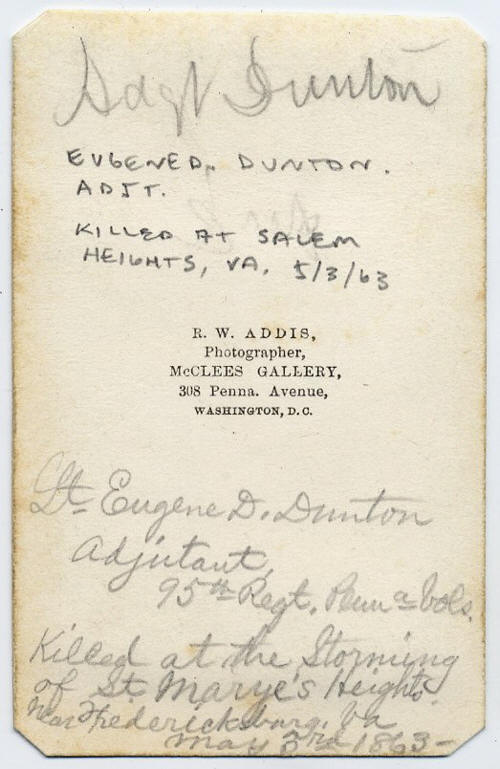 Adgt Dunton
EUGENE D. DUNTON.
ADJT.
KILLED AT SALEM
HEIGHTS, VA. 5/3/63
R. W. ADDIS,
Photographer,
McCLEES GALLERY,
308 Penna. Avenue,
WASHINGTON, D.C.
Lt Eugene D. Dunton
Adjutant,
95th Regt. Penna Vols.
Killed at the Storming
of St. Marye's Heights.
near Fredericksburg, Va
May 3rd 1863-